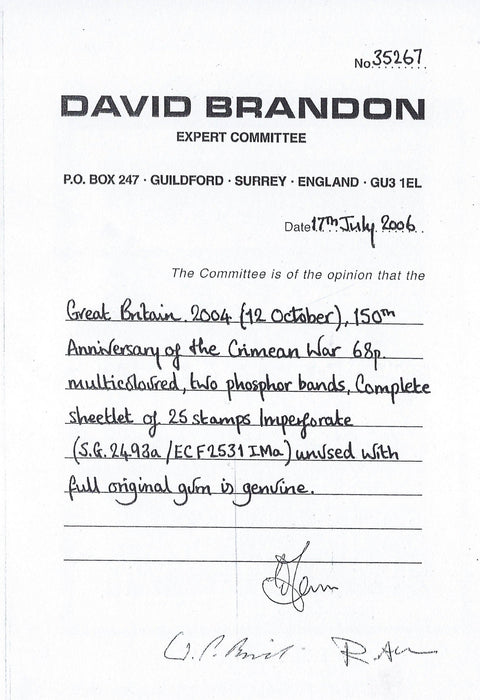 No. 35267
DAVID BRANDON
EXPERT COMMITTEE
P.O. BOX 247 · GUILDFORD · SURREY · ENGLAND · GU3 1EL
Date 17th July 2006
The Committee is of the opinion that the
Great Britain 2004 (12 October), 150th
Anniversary of the Crimean War 68p.
multicoloured, two phosphor bands, Complete
sheetlet of 25 stamps Imperforate
(S.G. 2493a /ECF2531 IMa) unused with
full original gum is genuine.